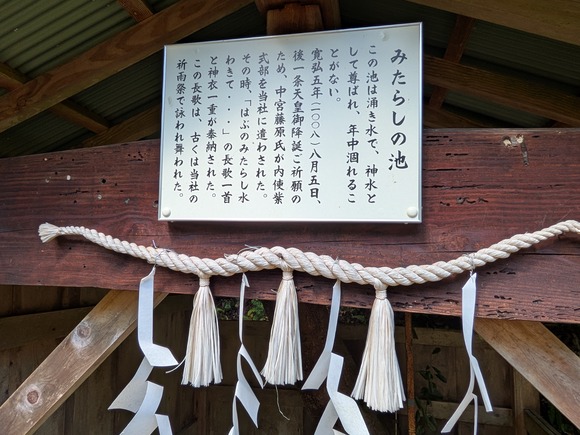 みたらしの池
この池は涌き水で、神水と
して尊ばれ、年中涸れるこ
とがない。
寛弘五年(一〇〇八)八月五日、
後一条天皇御降誕ご祈願の
ため、中宮藤原氏が内使紫
式部を当社に遣わされた。
その時、「はぶのみたらし水
わきて・・・」の長歌一首
と神衣一重が奉納された。
この長歌は、古くは当社の
祈雨祭で詠われ舞われた。